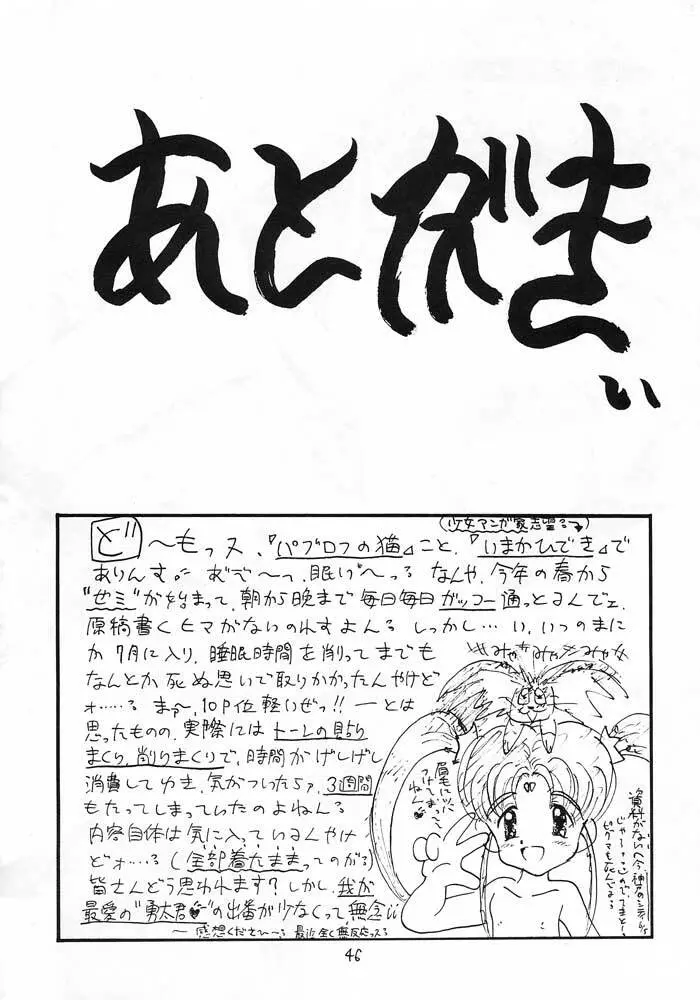 あとがき
(少女マンガ家志望る→)
ど〜もっス、『パブロフの猫』こと、『いまかひでき』で
ありんす。
眠い なんや、今年の春から
"ゼミ"が始まって、朝から晩まで毎日毎日ガッコー通っとるんでェ、
原稿書くヒマがないのれすよんる しっかし…い、いつのまに
か7月に入り、睡眠時間を削ってまでも
なんとか死ぬ思いで取りかかったんやけど
ォ……る まァ〜、10P位軽いぜっ!! ーとは
思ったものの、実際にはトーンの貼り
まくり、削りまくりで、時間がげしげし
消費してゆき、気がついたらァ、3週間
もたってしまっていたのよねんる
内容自体は気に入っているんやけ
どォ…る(全部着たままってのがる)
皆さんどう思われます? しかし、我が
最愛の"勇太君"の出番が少なくって、無念
〜感想くださひ〜る 最近全く無反応っスる
みゃみゃみゃみゃ
眉毛に
つけてまって
ねん
資料がない
46